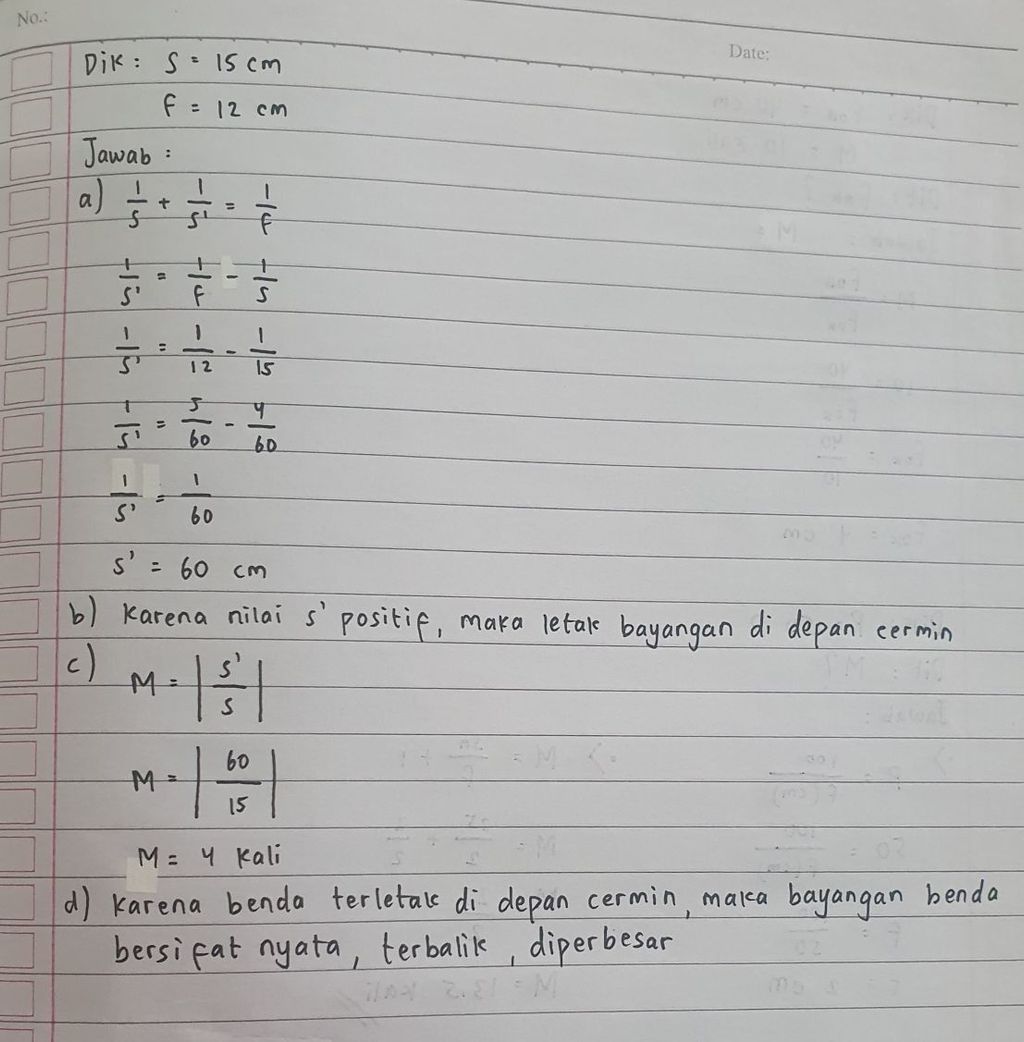 No.:
Date:
Dik : S = 15 cm
f = 12 cm
Jawab :
a) 1/S + 1/S' = 1/f
1/S' = 1/f - 1/S
1/S' = 1/12 - 1/15
1/S' = 5/60 - 4/60
1/S' = 1/60
S' = 60 cm
b) Karena nilai s' positif, maka letak bayangan di depan cermin
c) M = |S'/S|
M = |60/15|
M = 4 kali
d) Karena benda terletak di depan cermin, maka bayangan benda
bersifat nyata, terbalik, diperbesar